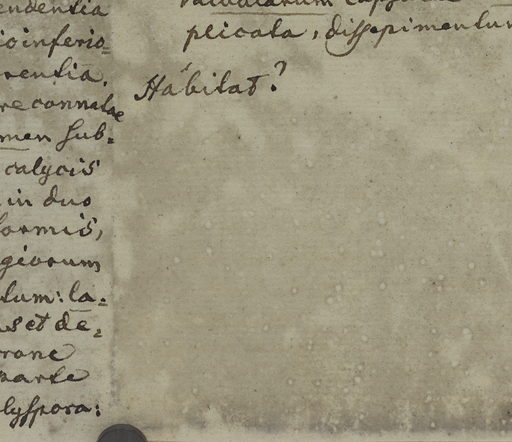 endentia
ioinferio-
rentia.
re connatae
men sub-
calycis
in duo
formis,
giorum
lum: la-
s et de-
rone
parte
lyspora:
plicata, dissepimentum
Habitat?